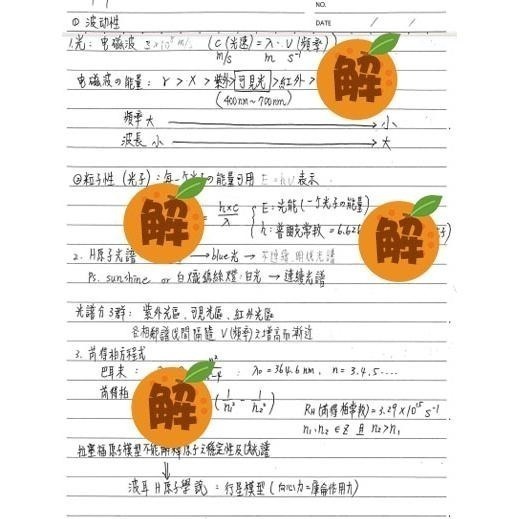 NO.
DATE / /
① 波动性
1.光：电磁波 3×10⁸ m/s C(光速)=λ·ν(頻率)
m/s m s⁻¹
电磁波の能量：γ > X > 紫外 > 可見光 > 紅外 >
(400nm~700nm)
頻率 大 → 小
波長 小 → 大
②粒子性 (光子)：每一个光子の能量可用 E=hν 表示
解
= h×c/λ { E：光能(一个光子の能量)
h：普朗克常数 = 6.626
2. H原子光譜 → blue光 → 不連續、明线光譜
Ps. sunshine or 白熾鎢絲燈：白光 → 連續光譜
光譜分3群：紫外光區、可見光區、紅外光區
各相鄰譜线間隔隨 ν(頻率)之增高而漸近
3. 芮得柏方程式
巴耳末： n²/ -4 ；λ₀=364.6nm，n=3.4.5....
芮得柏 (1/n₁² - 1/n₂²)
R_H(芮得柏常数)=3.29×10¹⁵ s⁻¹
n₁、n₂ ∈ Z 且 n₂>n₁
拉塞福原子模型不能解釋原子之穩定性及 光譜
⇓
波耳H原子學說：行星模型(向心力=庫侖作用力)